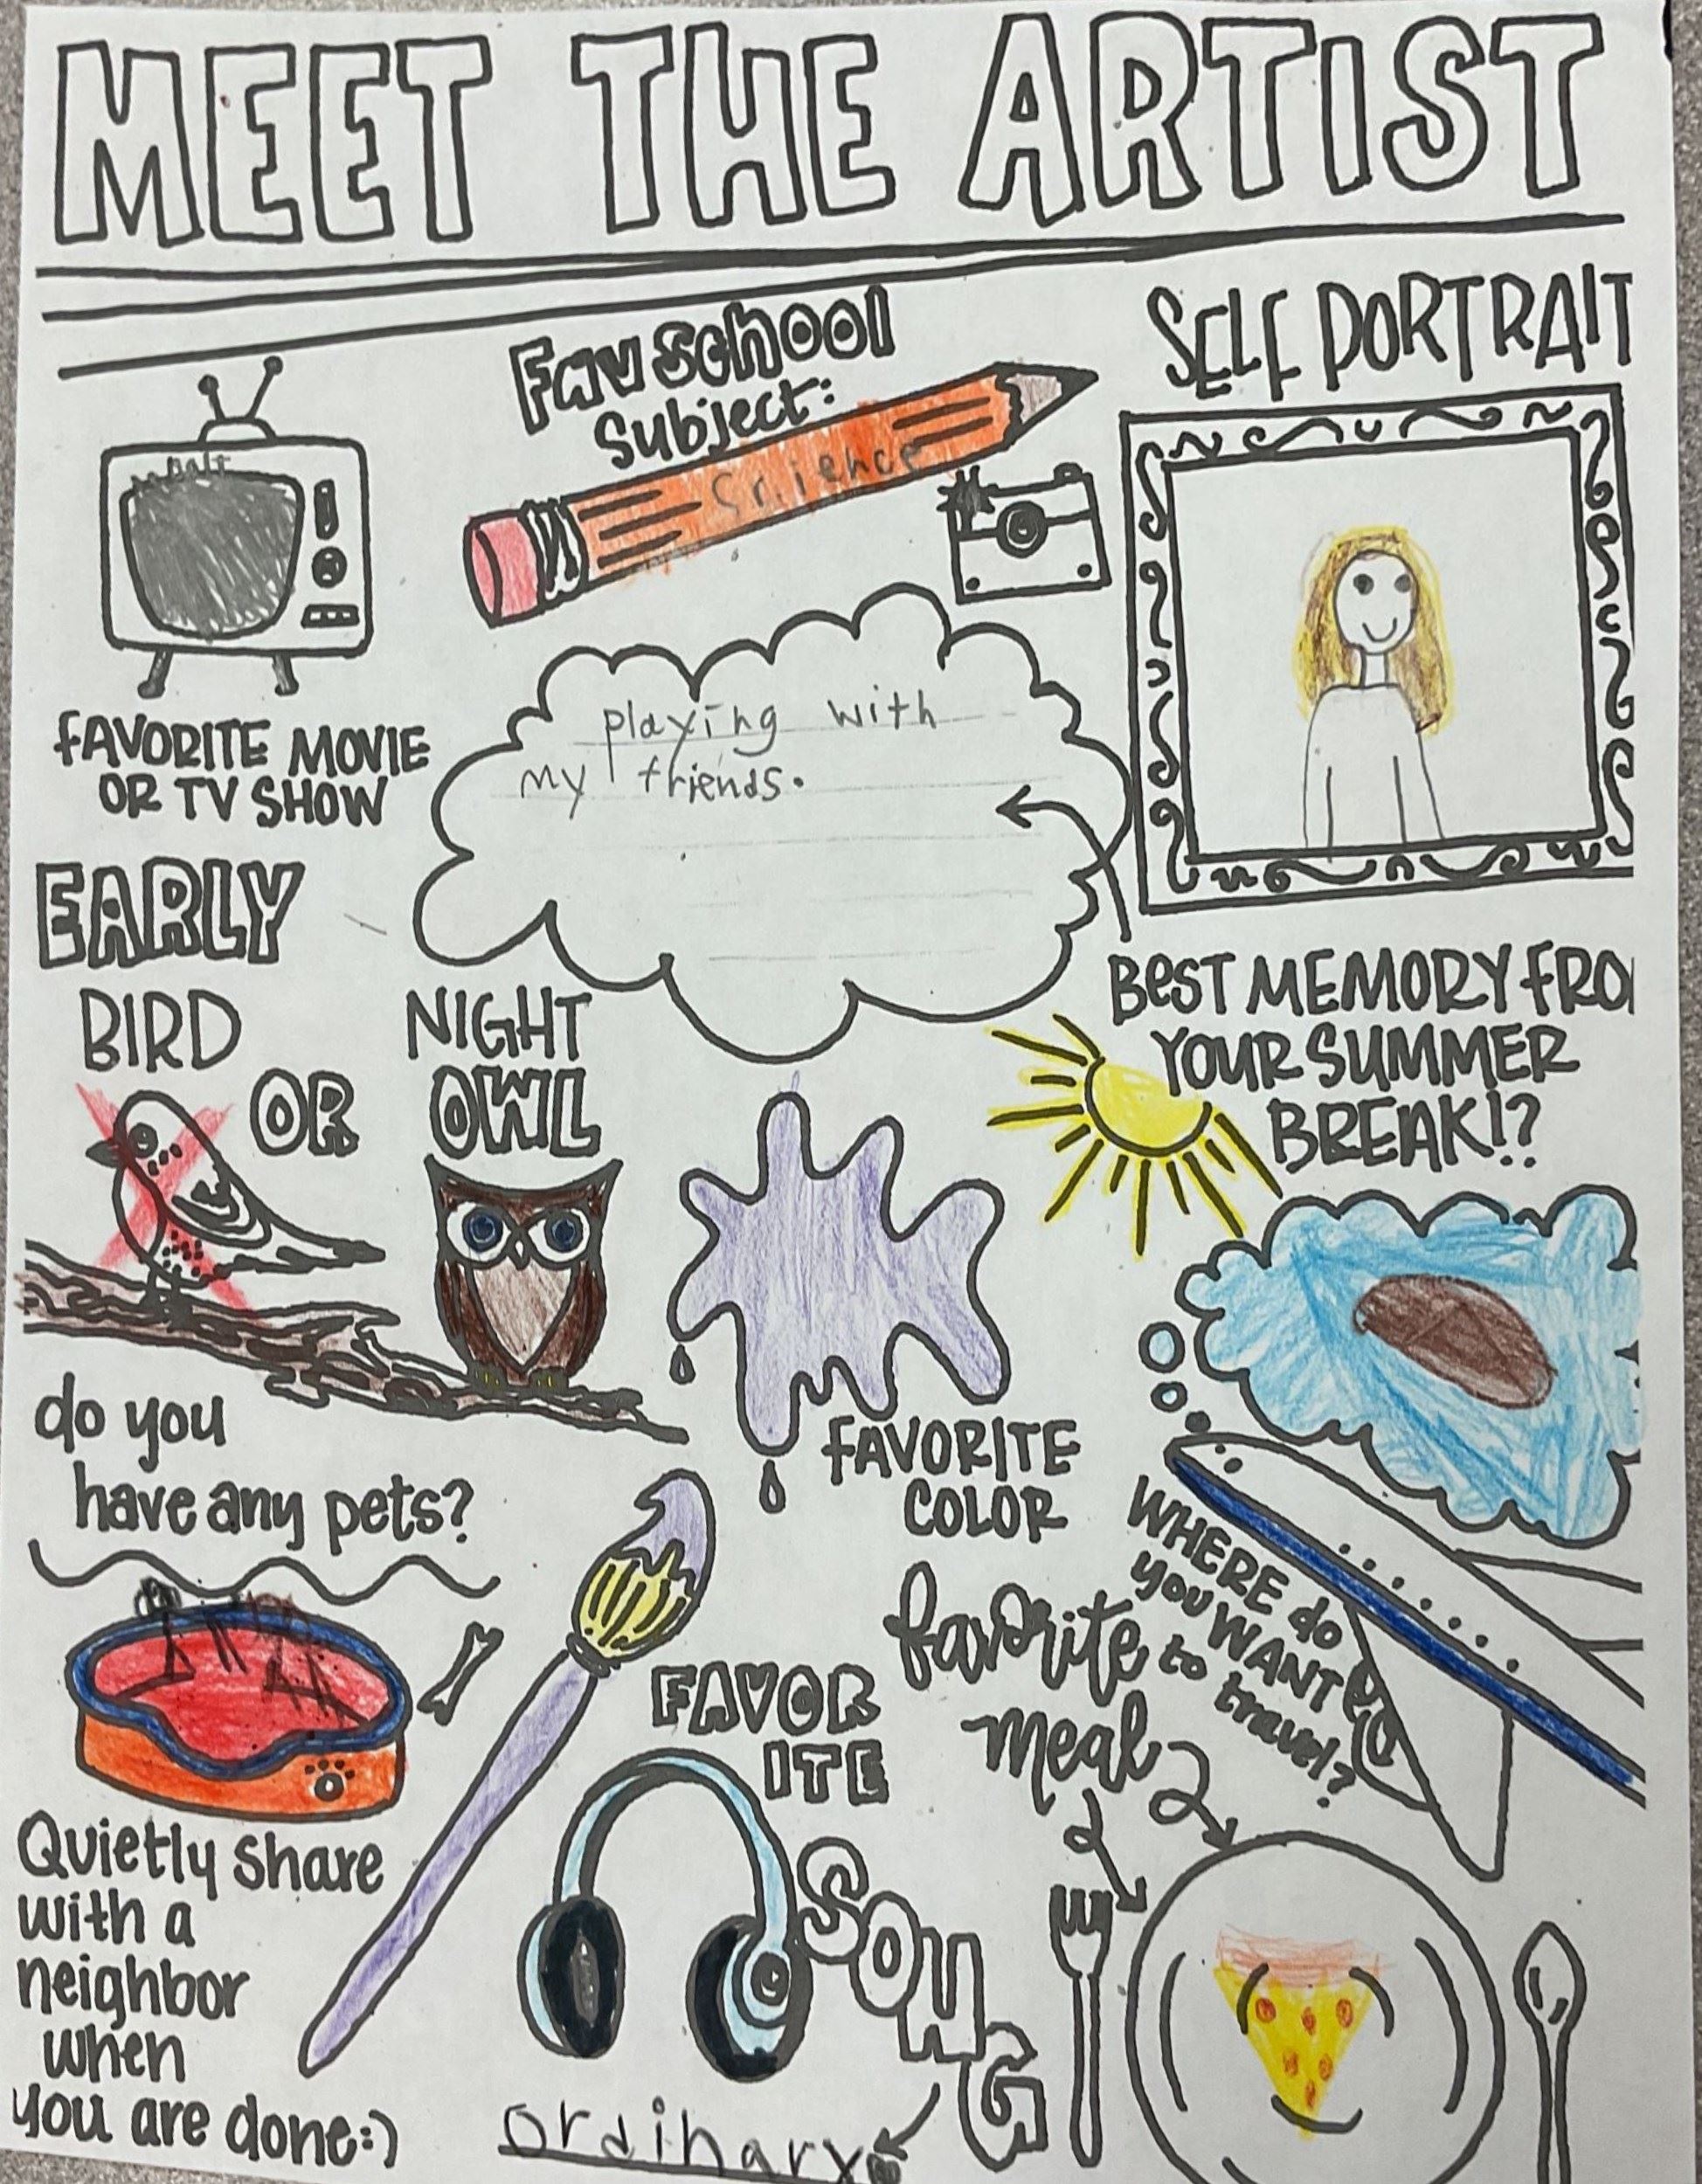 MEET THE ARTIST
Fav School
Subject:
Science
SELF PORTRAIT
FAVORITE MOVIE
OR TV SHOW
playing with
my friends.
BEST MEMORY FRO
YOUR SUMMER
BREAK!?
EARLY
BIRD
OR
NIGHT
OWL
FAVORITE
COLOR
do you
have any pets?
WHERE do
you WANT
to travel?
favorite
meal
FAVOR
ITE
SONG
ordinary
Quietly share
with a
neighbor
when
you are done:)